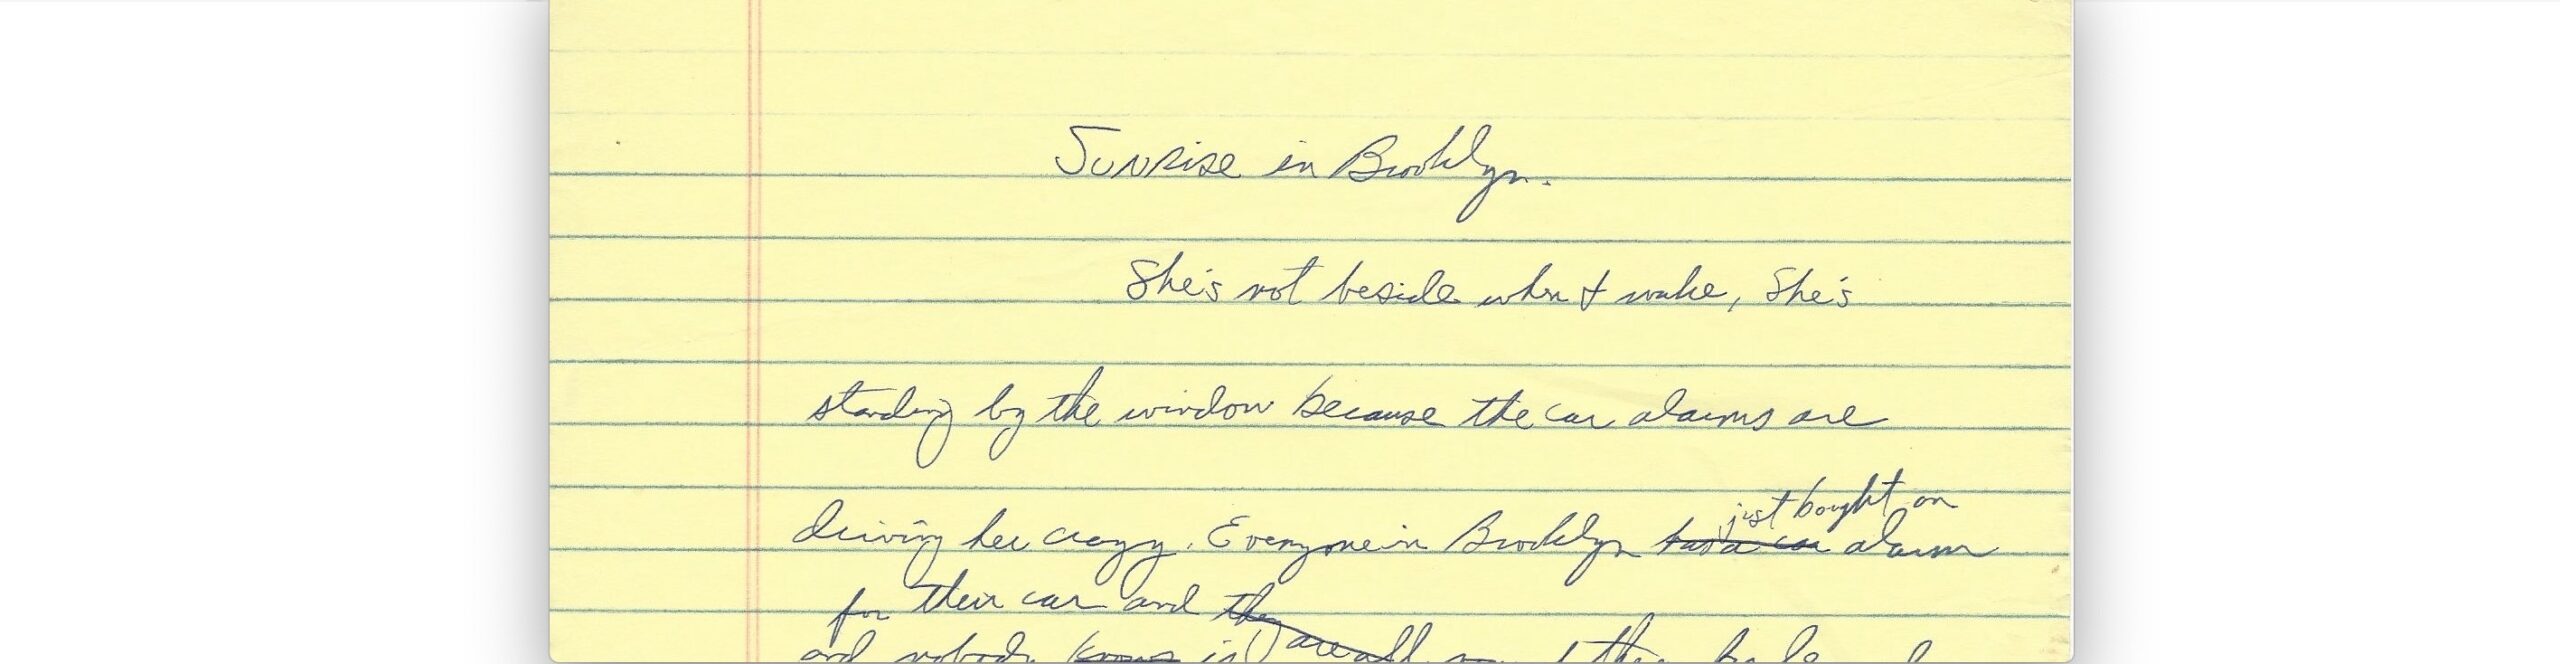 Sunrise in Brooklyn.
She's not beside when I wake, She's
standing by the window because the car alarms are
just bought an
driving her crazy. Everyone in Brooklyn has a car alarm
for their car and they are all
and nobody knows